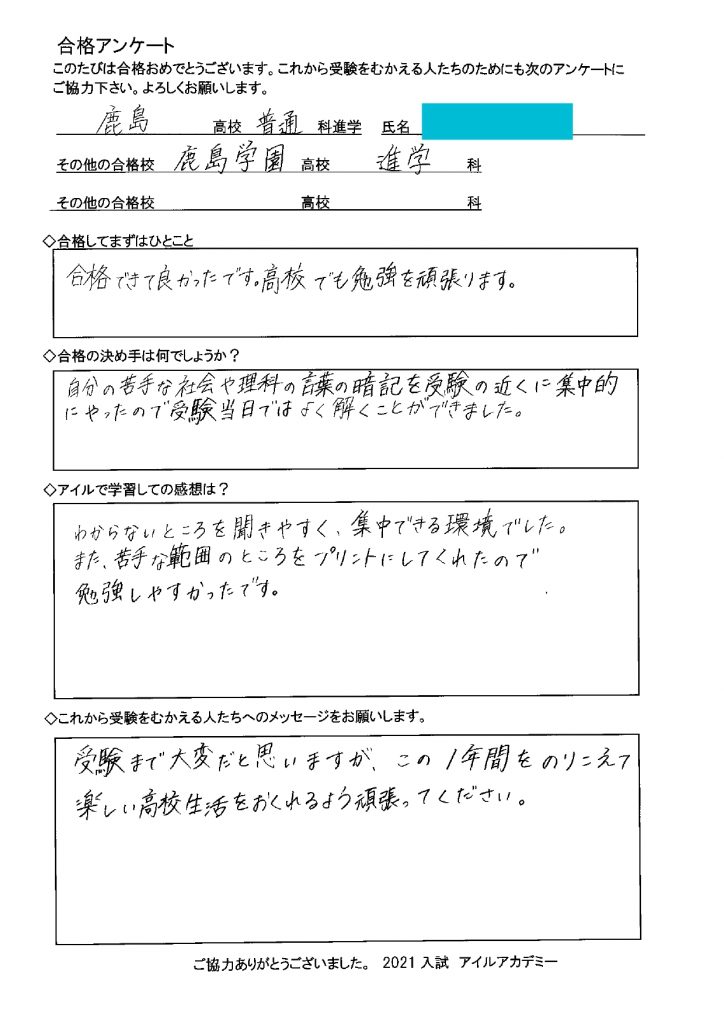 合格アンケート
このたびは合格おめでとうございます。これから受験をむかえる人たちのためにも次のアンケートに
ご協力下さい。よろしくお願いします。
鹿島 高校 普通 科進学 氏名
その他の合格校 鹿島学園 高校 進学 科
その他の合格校 高校 科
◇合格してまずはひとこと
合格できて良かったです。高校でも勉強を頑張ります。
◇合格の決め手は何でしょうか？
自分の苦手な社会や理科の言葉の暗記を受験の近くに集中的
にやったので受験当日ではよく解くことができました。
◇アイルで学習しての感想は？
わからないところを聞きやすく、集中できる環境でした。
また、苦手な範囲のところをプリントにしてくれたので
勉強しやすかったです。
◇これから受験をむかえる人たちへのメッセージをお願いします。
受験まで大変だと思いますが、この1年間をのりこえて
楽しい高校生活をおくれるよう頑張ってください。
ご協力ありがとうございました。 2021 入試 アイルアカデミー